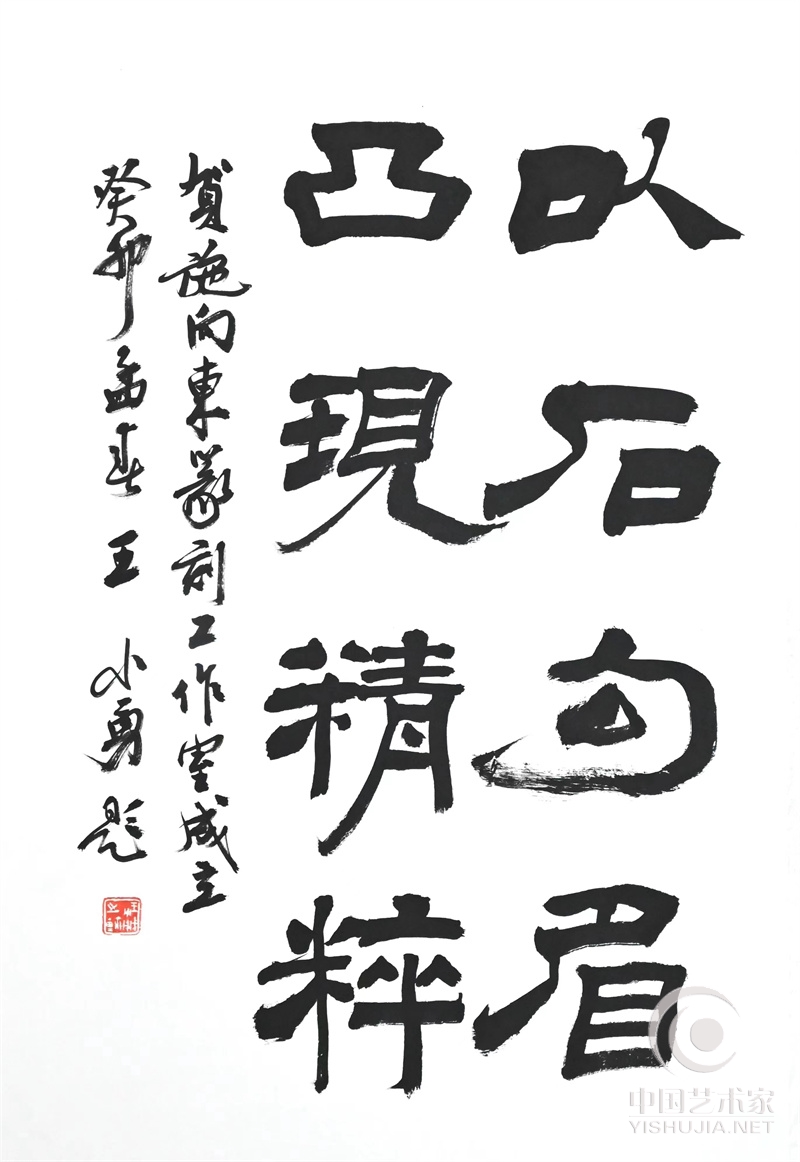 以石勾眉
凸現精粹
賀施向東篆刻工作室成立
癸卯孟春王小勇題
中国艺术家
YISHUJIA.NET